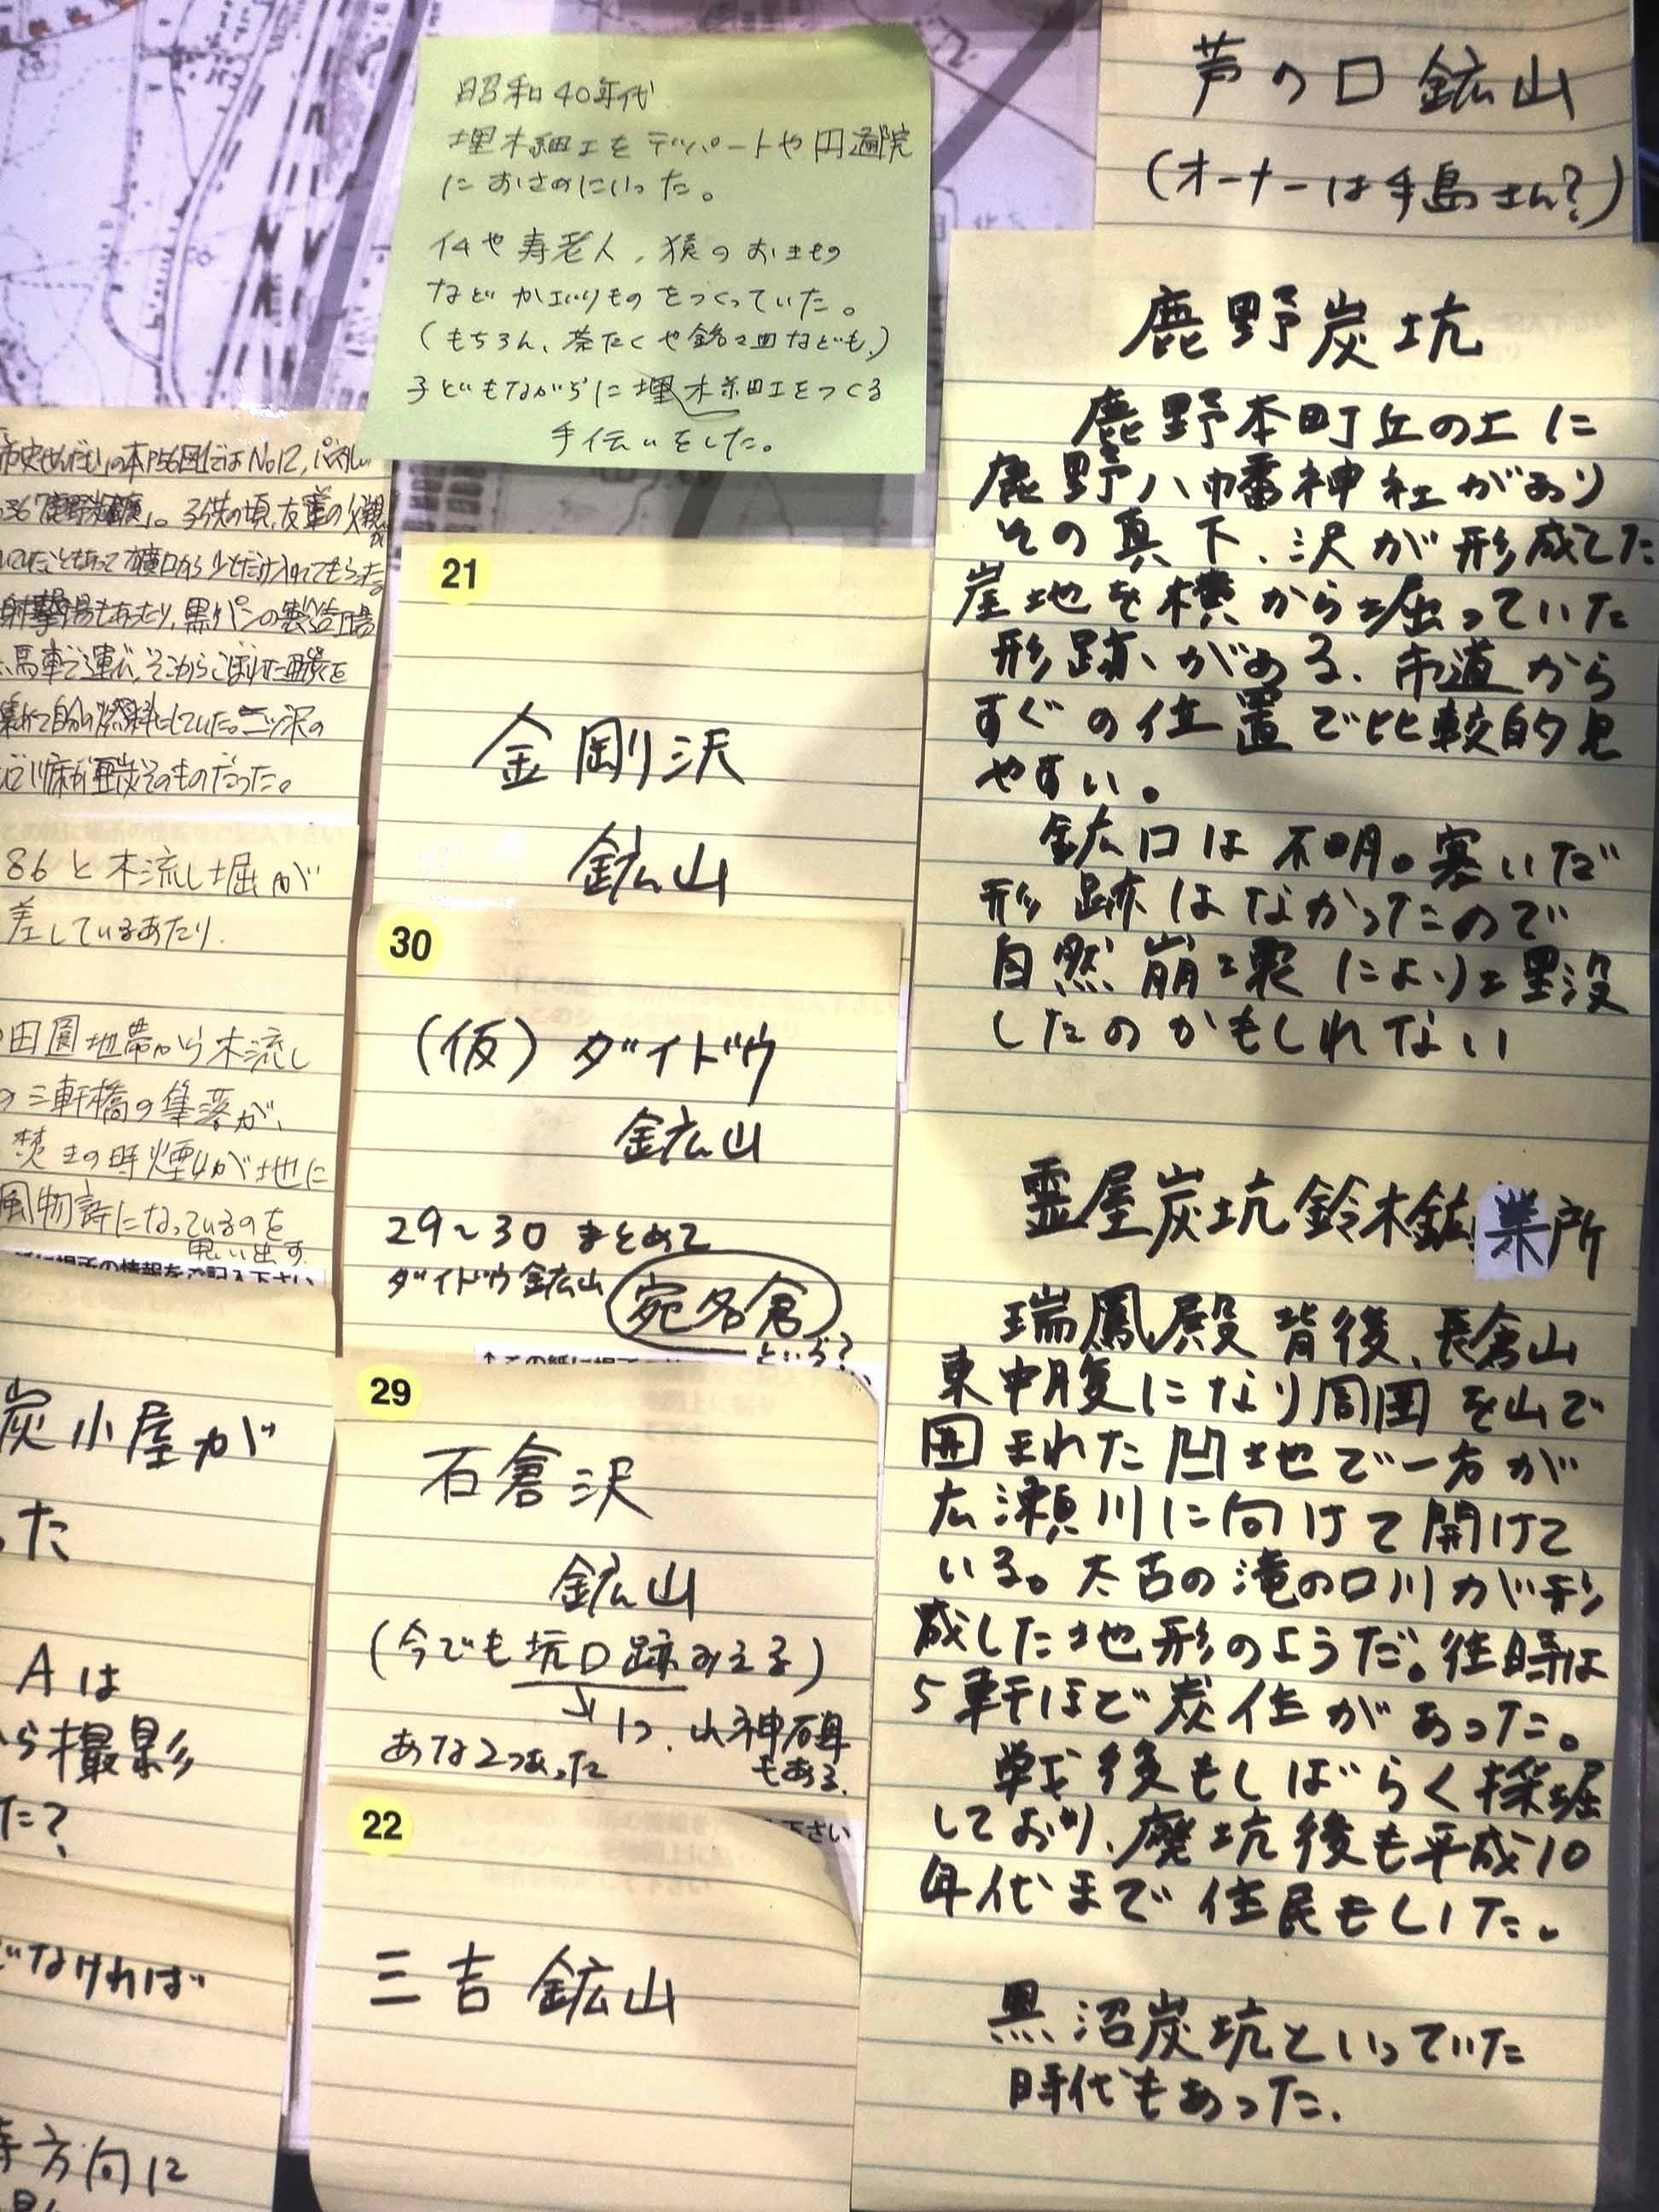 昭和40年代
埋木細工をデパートや円通院
におさめにいった。
寿老人、猿のおまもり
などかわいりものをつくっていた。
(もちろん、茶たくや銘々皿なども、)
子どもながらに埋木細工をつくる
手伝いをした。
芦の口鉱山
(オーナーは手島さん?)
鹿野炭坑
鹿野本町丘の上に
鹿野八幡神社があり
その真下、沢が形成した
崖地を横から掘っていた
形跡がある、市道から
すぐの位置で比較的見
やすい。
鉱口は不明。塞いだ
形跡はなかったので
自然崩壊により埋没
したのかもしれない
霊屋炭坑鈴木鉱業所
瑞鳳殿背後、長倉山
東中腹になり周囲を山で
囲まれた凹地で一方が
広瀬川に向けて開けて
いる。太古の滝の口川が形
成した地形のようだ。往時は
5軒ほど炭住があった。
戦後もしばらく採堀
しており、廃坑後も平成10
年代まで住民もいた。
黒沼炭坑といっていた
時代もあった.
21
金剛沢
鉱山
30
(仮)ダイドウ
鉱山
29~30 まとめて
ダイドウ鉱山 宛名倉
という?
29
石倉沢
鉱山
(今でも坑口跡みえる)
→1つ.山神碑
もある.
あな2つあった
22
三吉鉱山
子供の頃,友達の父親が
射撃場もあったり,黒パンの製造工場
馬車で運び,そこからこぼれた亜炭を
集めて自分の燃料にしていた。二ツ沢の
川床が亜炭そのものだった。
86と木流し堀が
差しているあたり.
田園地帯から木流し
の三軒橋の集落が、
焚きの時煙りが地に
風物詩になっているのを
思い出す.
炭小屋が
った
Aは
ら撮影
た?
なければ
方向に